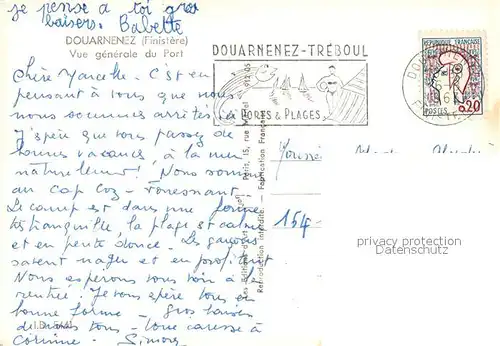 je pense à toi gros
baisers. Babette
DOUARNENEZ (Finistère)
Vue générale du Port
Chère Marcelle - C'est en
pensant à vous que nous
nous sommes arrêtés ici
J'espère que vous passez de
bonnes vacances, à la mer
naturellement! Nous sommes
au Cap Coz - Fouesnant
Le camp est dans une ferme
très tranquille, la plage est calme
et en pente douce. Les garçons
savent nager et en profitent
Nous espérons vous voir à la
rentrée. Je vous espère tous en
bonne forme - gros baisers
de nous tous - Une caresse à
Corinne. Simone
DOUARNENEZ-TRÉBOUL
PORTS & PLAGES
REPUBLIQUE FRANÇAISE
POSTES 0,20
Paris, 15, rue
Reproduction interdite. - Fabrication Française
154
privacy protection
Datenschutz